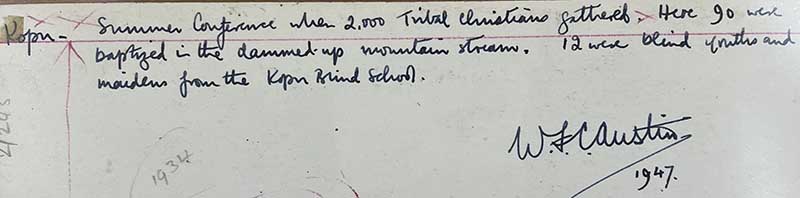 Kopu - Summer Conference when 2,000 Tribal Christians gathered. Here 90 were
baptized in the dammed-up mountain stream. 12 were blind youths and
maidens from the Kopu Blind School.
W.F.C. Austin
1947.
1934
2/243